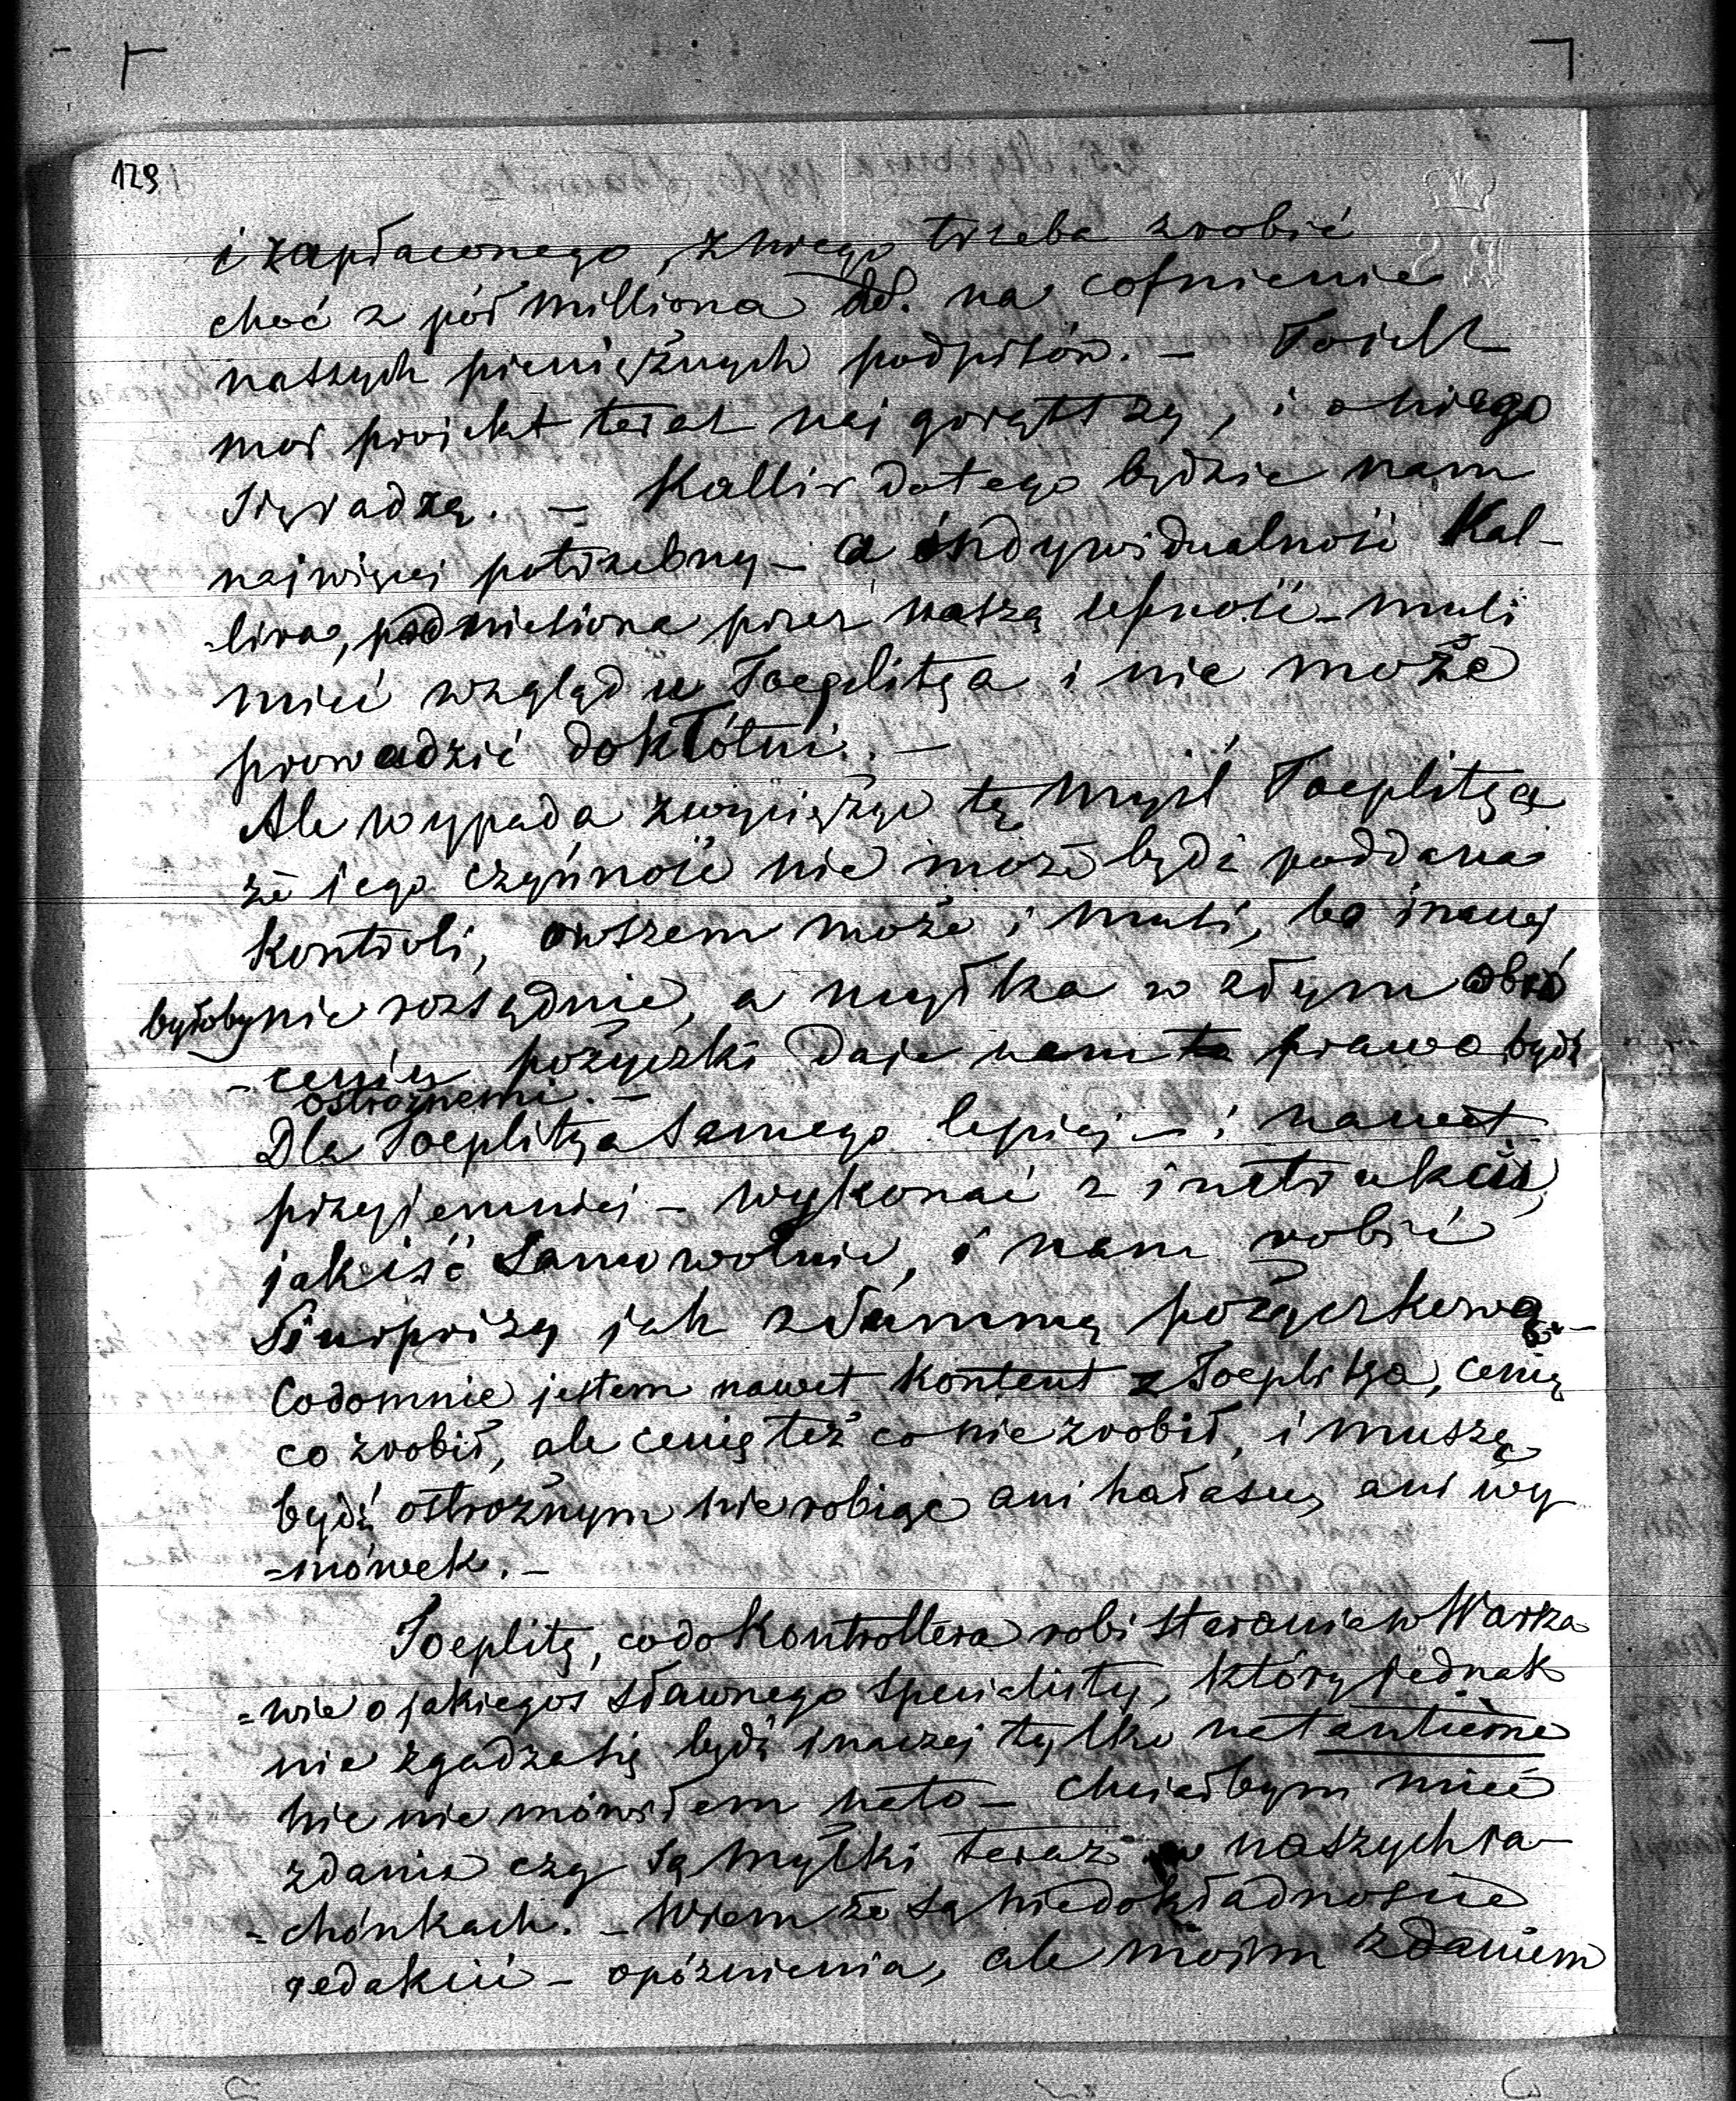 129
i zapłaconego, z niego trzeba zrobić
choć z pół milliona na cofnienie
naszych pieniężnych podpisów. – To jest
mój projekt teraz najgorętszy, i o niego
się radzę. – Kallir do tego będzie nam
najwięcej potrzebny – a indywidualność Kal-
-lira, podniesiona przez naszą ufność – musi
mieć wzgląd u Toeplitza i nie może
prowadzić do kłótni. –
Ale wypada zwyciężyć tę myśl Toeplitza
że jego czynność nie może bydź poddana
kontroli, owszem może i musi, bo inaczej
byłoby nierozsądnie, a myłka w złym obró
-ceniu pożyczki daje nam prawo bydź
ostrożnemi. –
Dla Toeplitza samego lepiej – i nawet
przyjemniej – wykonać z instrukcii,
jak iść samowolnie, i nam robić
siurprizy jak z summą pożyczkową. –
Co do mnie jestem nawet kontent z Toeplitza, cenię
co zrobił, ale cenię też co nie zrobił, i muszę
bydź ostrożnym nie robiąc ani hałasu, ani wy
=mówek. –
Toeplitz, co do Kontrollera robi staranie w Warsza
=wie o jakiegoś sławnego specialisty, który jednak
nie zgadza się bydź inaczej tylko na tantième
nic nie mówiłem na to – chciałbym mieć
zdanie czy są myłki teraz w naszych ra-
=chónkach. – Wiem że są niedokładnoście
redakcii – opóznienia, ale moim zdaniem